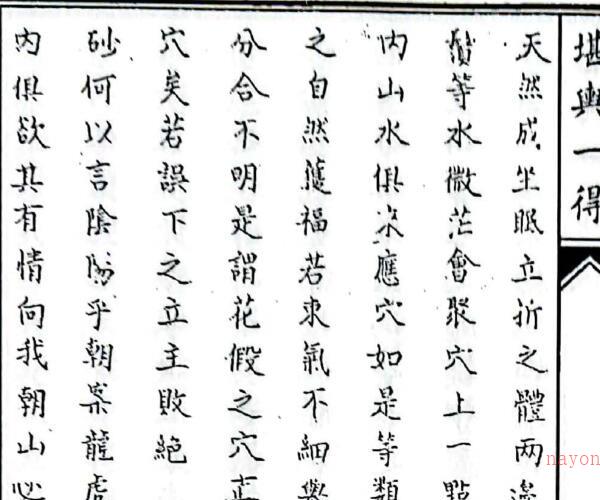 堪輿一得
天然成坐眠立折之體兩邊
等水微茫會聚穴上一點
內山水俱來應穴如是等類
之自然獲福若束氣不細與
分合不明是謂花假之穴
穴矣若誤下之立主敗絕
砂何以言陰陽乎朝案龍虎
內俱欲其有情向我朝山
nayon